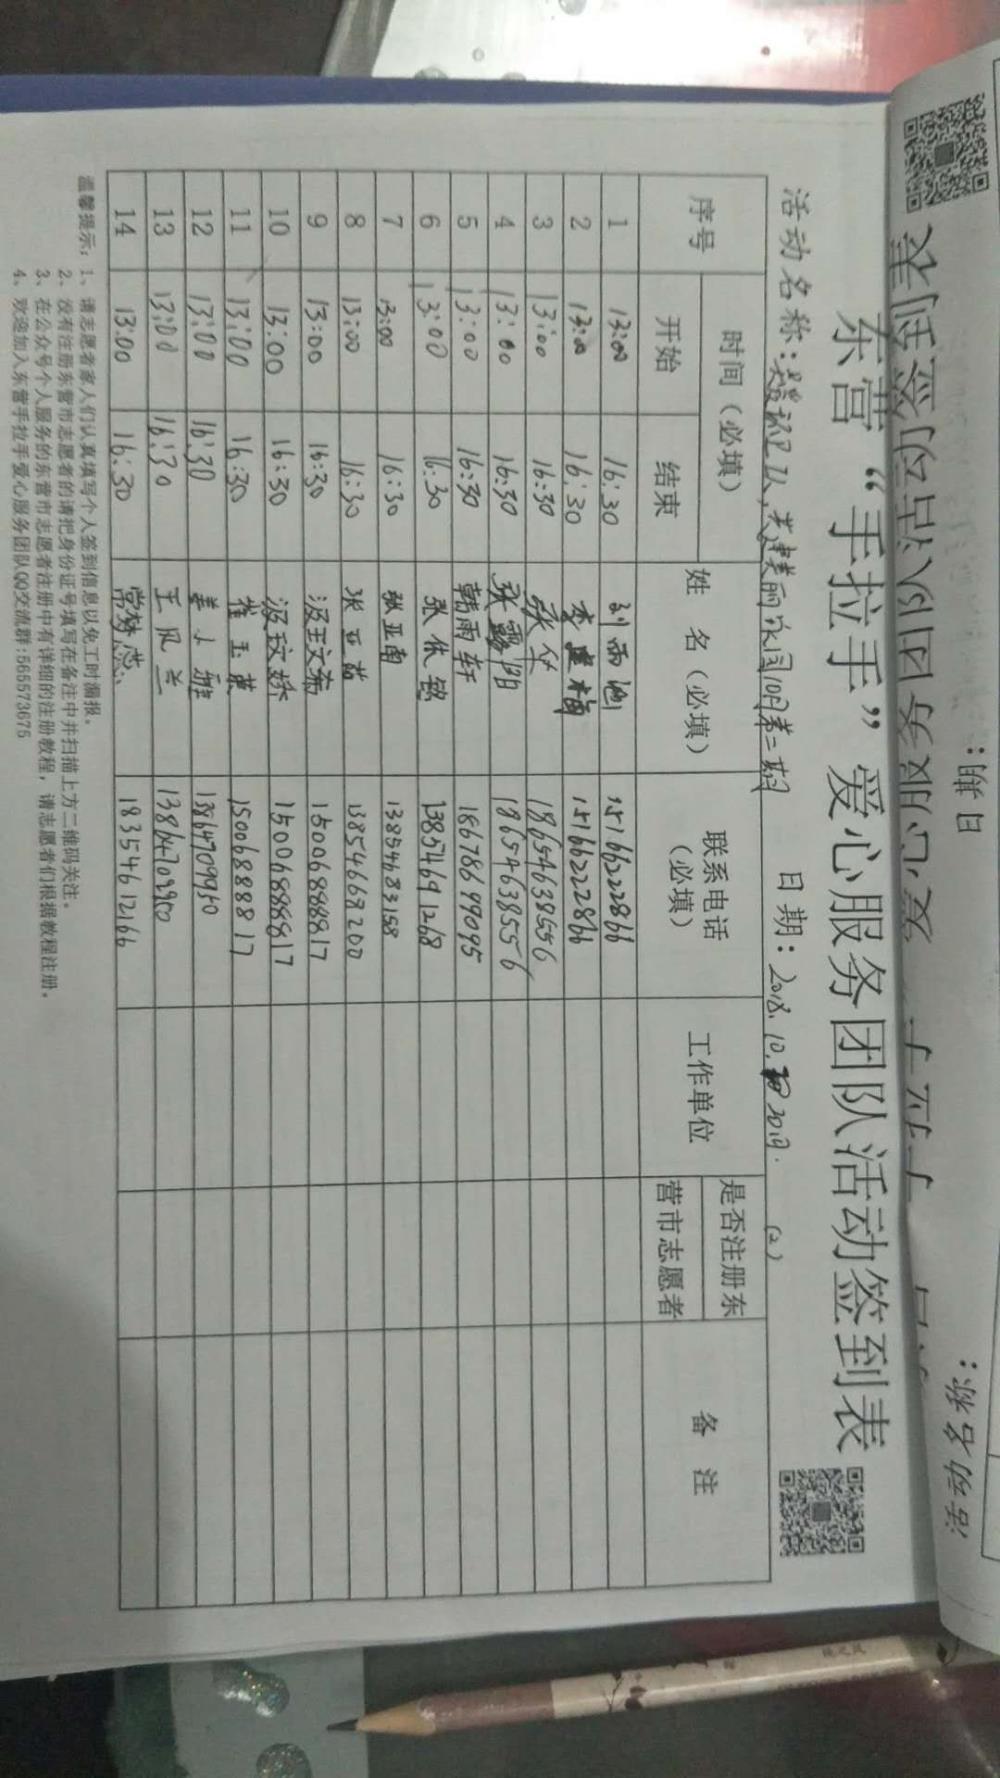 东营“手拉手”爱心服务团队活动签到表
活动名称： 日期：2018.10.20日. (2)
序号 时间（必填） 姓 名（必填） 联系电话（必填） 工作单位 是否注册东营市志愿者 备 注
开始 结束
1 13:00 16:30 15166222866
2 13:00 16:30 李建梅 15166222866
3 13:00 16:30 张华 18654638556
4 13:00 16:30 18654638556
5 13:00 16:30 韩雨轩 18678649095
6 13:00 16:30 张休敏 13854691268
7 13:00 16:30 张亚南 13854683158
8 13:00 16:30 张亚茹 13854669200
9 13:00 16:30 15006888817
10 13:00 16:30 15006888817
11 13:00 16:30 崔玉英 15006888817
12 13:00 16:30 姜小雅 13864709950
13 13:00 16:30 王凤兰 13864702960
14 13:00 16:30 常梦蕊 18354612166
温馨提示：1、请志愿者家人们认真填写个人签到信息以免工时漏报。
2、没有注册东营市志愿者的请把身份证号填写在备注中并扫描上方二维码关注。
3、在公众号个人服务的东营市志愿者注册中有详细的注册教程，请志愿者们根据教程注册。
4、欢迎加入东营手拉手爱心服务团队QQ交流群：565573675